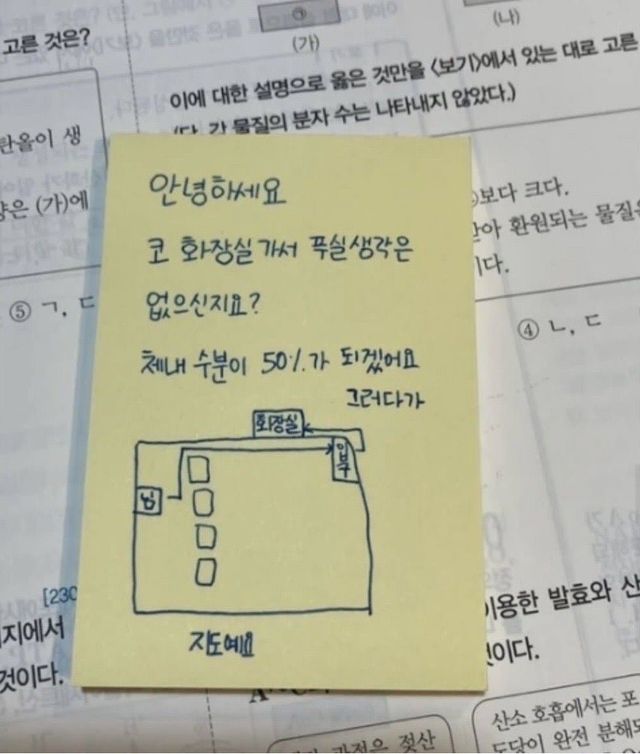 고른 것은?
㉠
(가)
(나)
이에 대한 설명으로 옳은 것만을 <보기>에서 있는 대로 고른
(단, 각 물질의 분자 수는 나타내지 않았다.)
탄올이 생
양은 (가)에
보다 크다.
환원되는 물질은
이다.
⑤ ㄱ, ㄷ
④ ㄴ, ㄷ
안녕하세요
코 화장실가서 푸실생각은
없으신지요?
체내 수분이 50%가 되겠어요
그러다가
화장실
입구
님
지도예요
[230
지에서
것이다.
이용한 발효와 산
것이다.
산소 호흡에서는 포
도당이 완전 분해
과정은 젖산